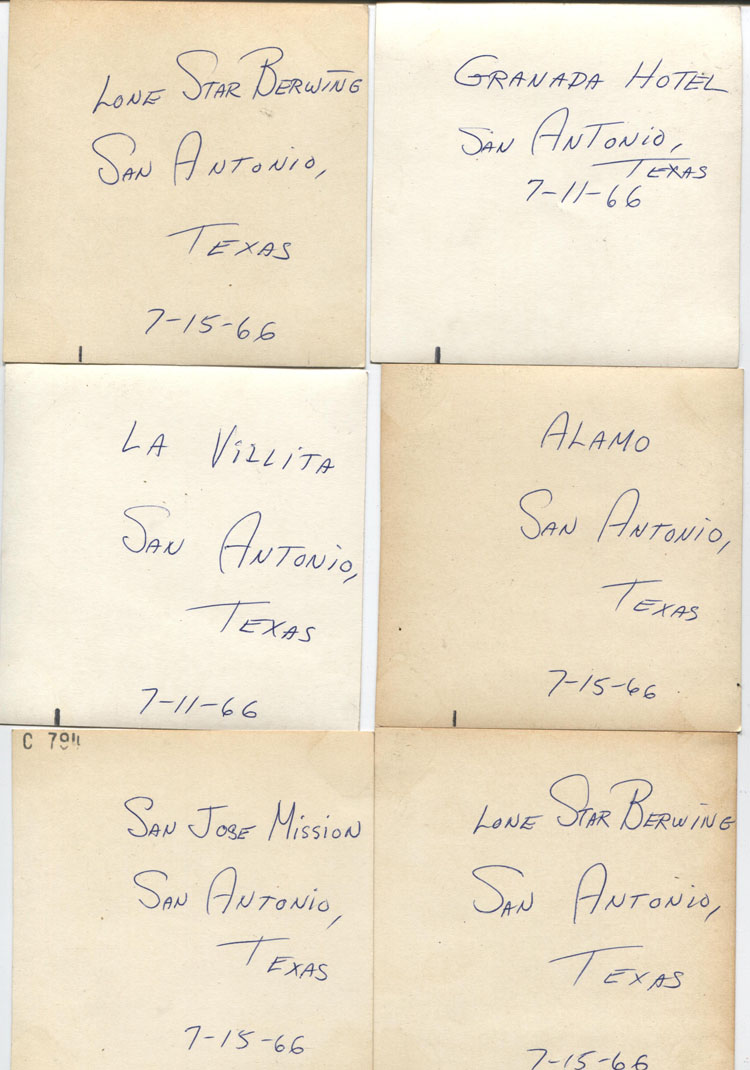 Lone Star Berwing
San Antonio,
Texas
7-15-66
Granada Hotel
San Antonio,
Texas
7-11-66
La Villita
San Antonio,
Texas
7-11-66
Alamo
San Antonio,
Texas
7-15-66
C 794
San Jose Mission
San Antonio,
Texas
7-15-66
Lone Star Berwing
San Antonio,
Texas
7-15-66